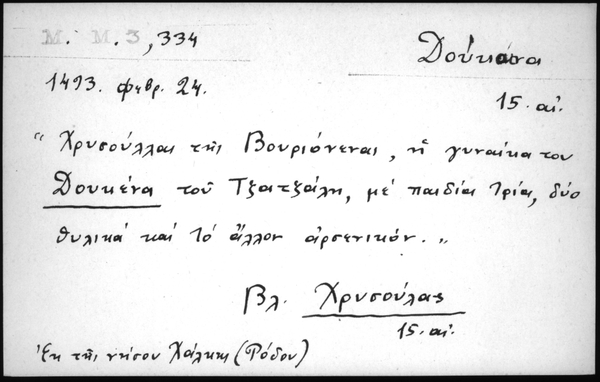 Μ. Μ. 3, 334
Δούκαινα
1493. φεβρ. 24.
15. αἰ.
"Χρυσούλλας τῆς Βουριόνενας, ἡ γυναίκα του
Δουκένα τοῦ Τζατζάλη, μέ παιδία τρία, δύο
θυλικά καί τό ἄλλον ἀρσενικόν."
Βλ. Χρυσούλας
15. αἰ.
Ἐκ τῆς νήσου Χάλκης (Ρόδου)